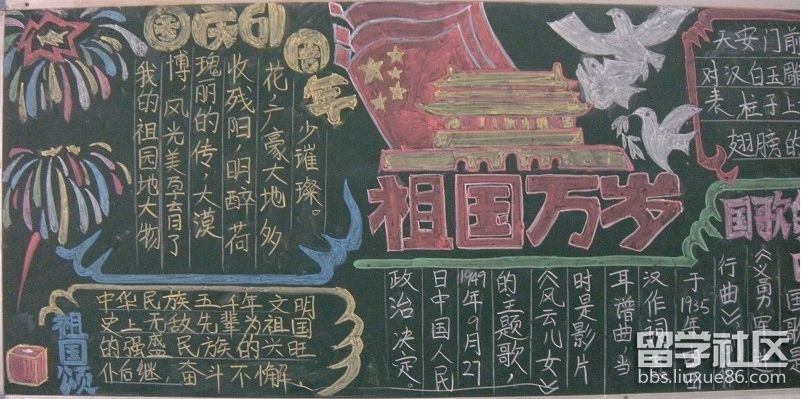 国庆61周年
我的祖园地大物
博 风光美孕育了
瑰丽的传,大漠
收残阳,明醉荷
花广豪大地多
少璀璨。
祖国颂
中华民族五千年文明
史上无敌先辈为祖国
的强盛民族的兴旺
仆后继,奋斗不懈,
祖国万岁
天安门前
对汉白玉雕
表柱子上
翅膀的
国歌
国歌是
《义勇军
行曲》
于1935年
汉作词
耳谱曲当
时是影片
《风云儿女》
的主题歌,
1949年9月27
日中国人民
政治决定。
留学社区
bbs.liuxue86.com